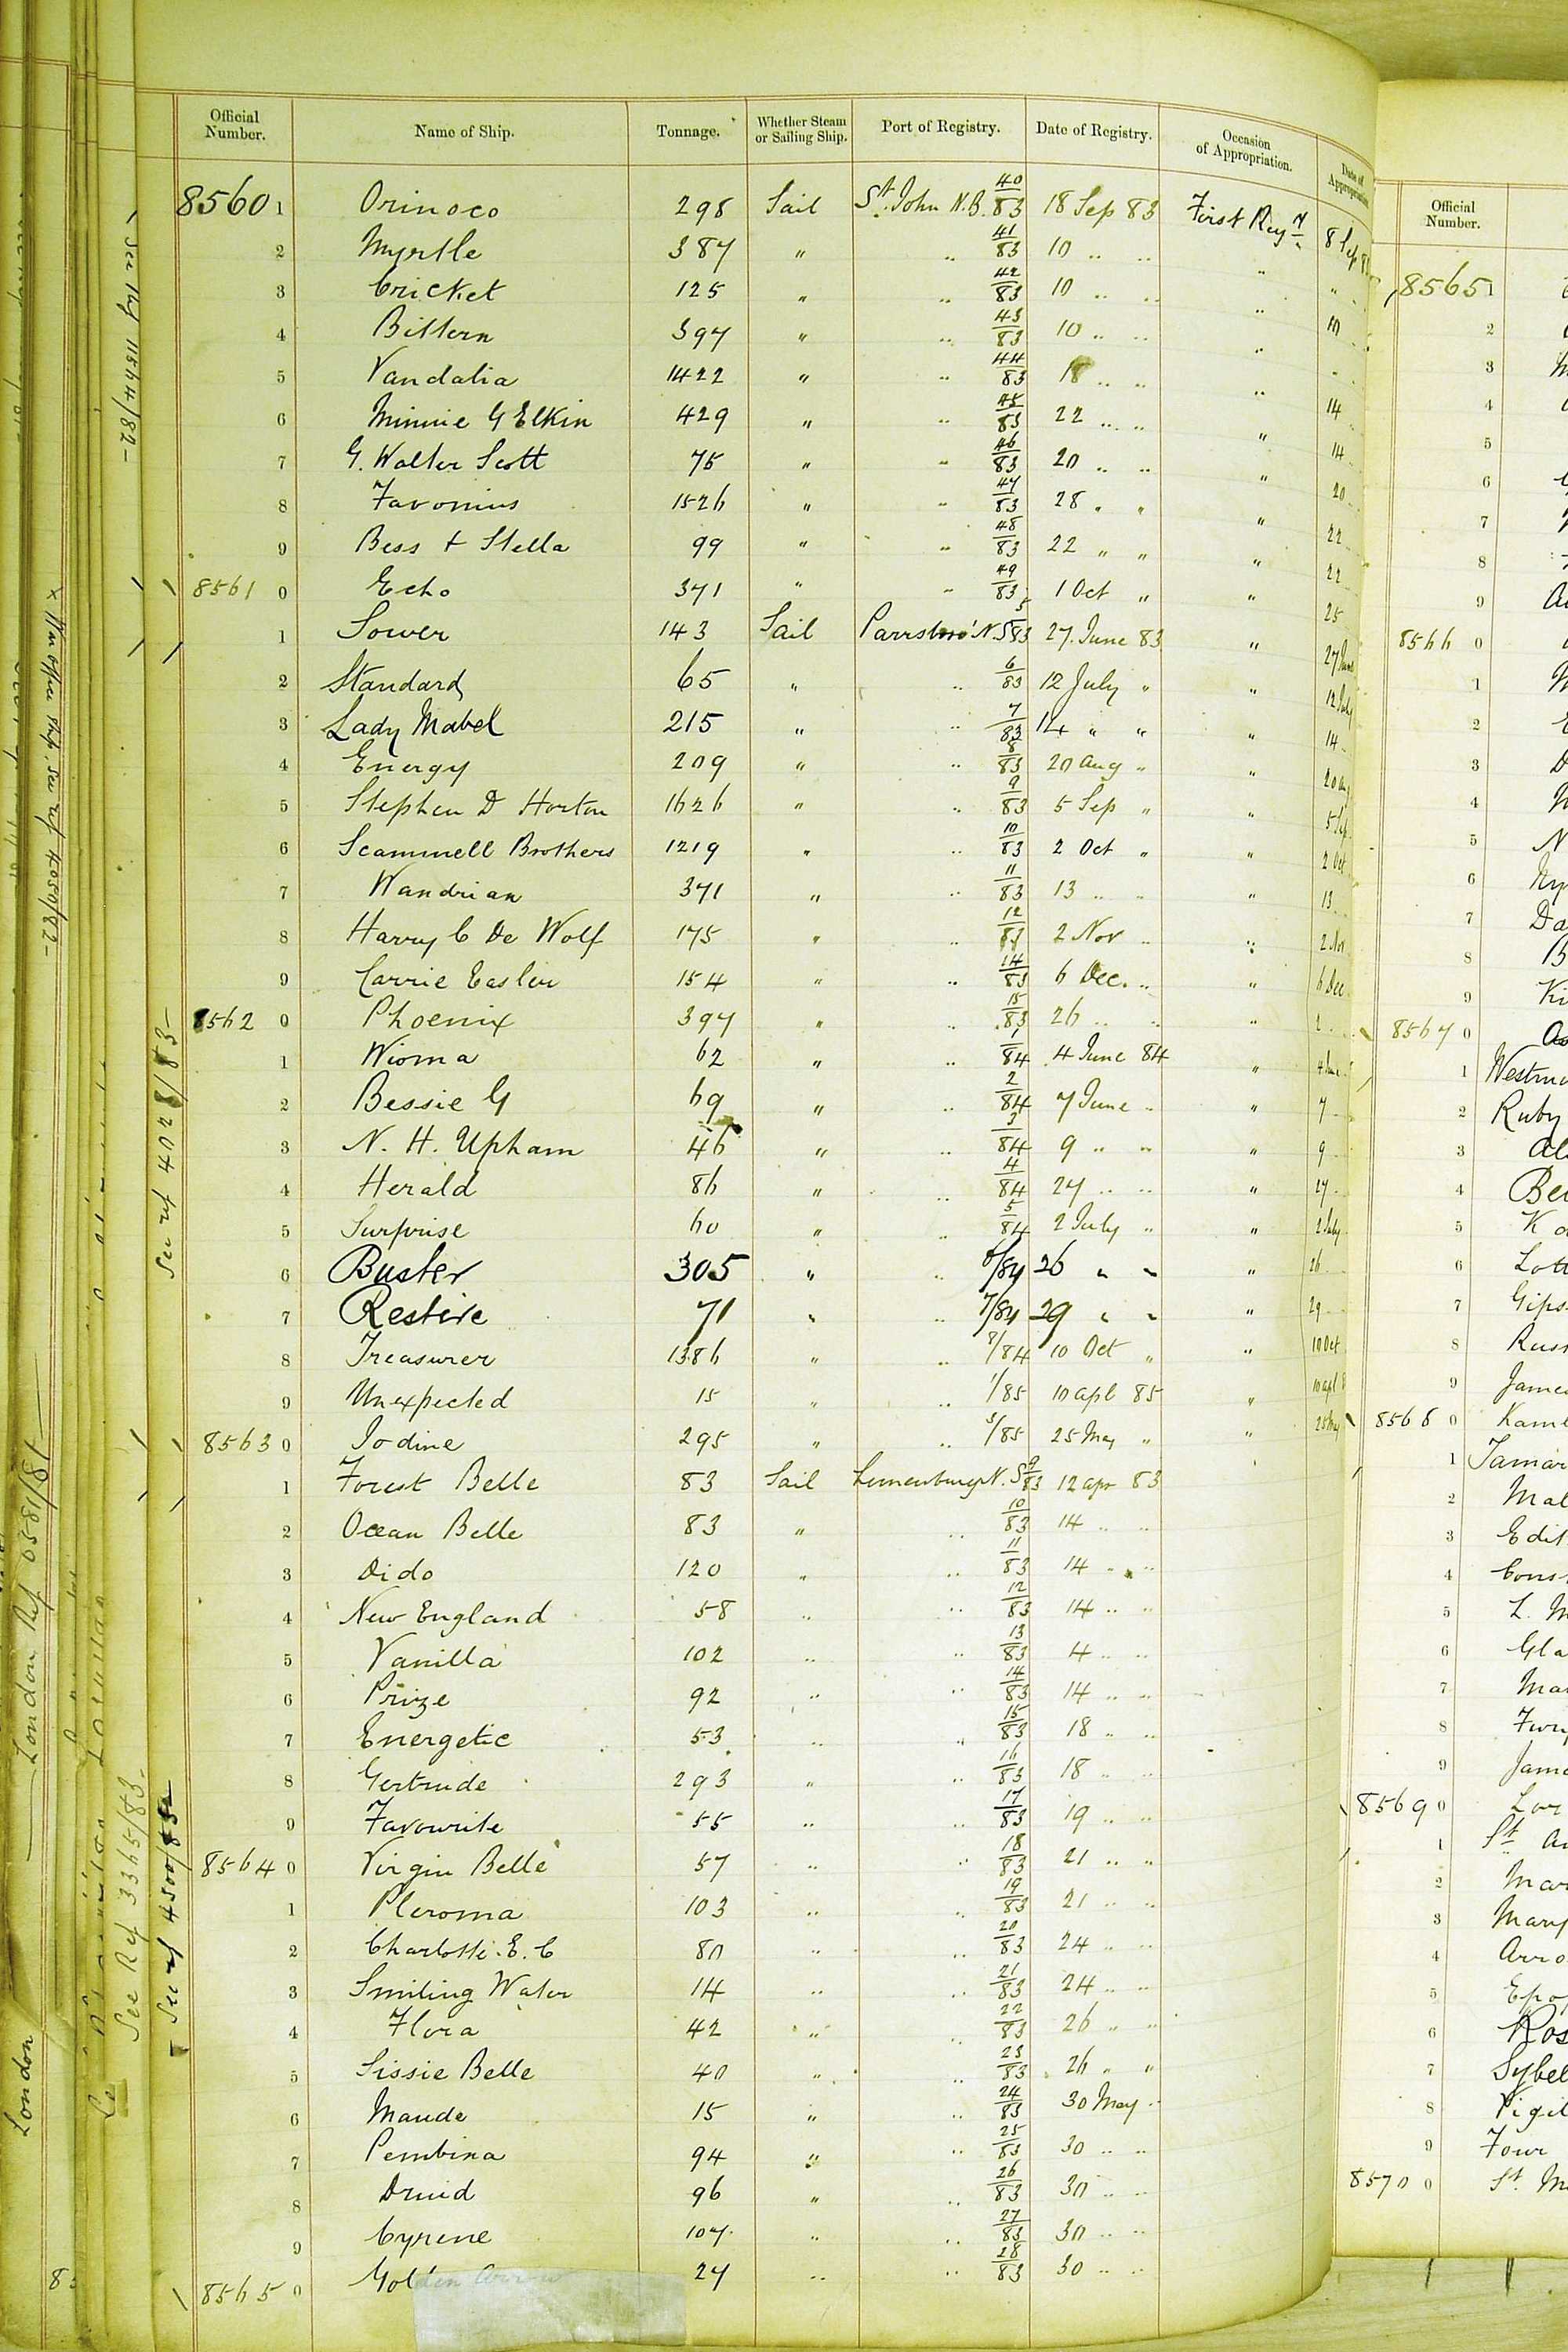 Official Number. Name of Ship. Tonnage. Whether Steam or Sailing Ship. Port of Registry. Date of Registry. Occasion of Appropriation. Date of Appropriation
8560 1 Orinoco 298 Sail St. John N.B. 40/83 18 Sep 83 First Reg 8 Sep
2 Myrtle 387 " .. 41/83 10 .. ..
3 Cricket 125 " .. 42/83 10 .. ..
4 Bittern 397 " .. 43/83 10 .. .. 10
5 Vandalia 1422 " .. 44/83 18 .. ..
6 Minnie G Elkin 429 " .. 45/83 22 .. .. 14
7 G. Walter Scott 75 " .. 46/83 20 .. .. " 14
8 Favonius 1526 " .. 47/83 28 " " " 20
9 Bess & Stella 99 " .. 48/83 22 " " " 22
8561 0 Echo 371 " .. 49/83 1 Oct " " 22
1 Sower 143 Sail Parrsboro' N.S 5/83 27 June 83 " 27 June
2 Standard 65 " .. 6/83 12 July " " 12 July
3 Lady Mabel 215 " .. 7/83 14 " " " 14
4 Energy 209 " .. 8/83 20 Aug " " 20 Aug
5 Stephen D Horton 1626 " .. 9/83 5 Sep " " 5 Sep
6 Scammell Brothers 1219 " .. 10/83 2 Oct " " 2 Oct
7 Wandrian 371 " .. 11/83 13 .. .. " 13
8 Harry C De Wolf 175 " .. 12/83 2 Nov .. " 2 Nov
9 Carrie Easler 154 " .. 14/83 6 Dec. .. " 6 Dec
8562 0 Phoenix 397 " .. 15/83 26 .. .. "
1 Wioma 62 " .. 1/84 4 June 84 " 4 June
2 Bessie G 69 " .. 2/84 7 June .. " 7
3 N. H. Upham 46 " .. 3/84 9 .. .. " 9
4 Herald 86 " .. 4/84 27 .. .. " 27
5 Surprise 60 " .. 5/84 2 July .. " 2 July
6 Buster 305 " .. 6/84 26 " " " 26
7 Restive 71 " .. 7/84 29 " " " 29
8 Treasurer 1386 " .. 8/84 10 Oct " " 10 Oct
9 Unexpected 15 " .. 1/85 10 Apl 85 " 10 Apl
8563 0 Iodine 295 " .. 3/85 25 May " " 25 May
1 Forest Belle 83 Sail Lunenburg N. S 9/83 12 Apr 83
2 Ocean Belle 83 " .. 10/83 14 .. ..
3 Dido 120 " .. 11/83 14 .. ..
4 New England 58 .. .. 12/83 14 .. ..
5 Vanilla 102 .. .. 13/83 4 .. ..
6 Prize 92 .. .. 14/83 14 .. ..
7 Energetic 53 .. .. 15/83 18 .. ..
8 Gertrude 293 " .. 16/83 18 .. ..
9 Favourite 55 .. .. 17/83 19 .. ..
8564 0 Virgin Belle 57 .. .. 18/83 21 .. ..
1 Pleroma 103 .. .. 19/83 21 .. ..
2 Charlotte. E. C 80 .. .. 20/83 24 .. ..
3 Smiling Water 14 .. .. 21/83 24 .. ..
4 Flora 42 .. .. 22/83 26 .. ..
5 Sissie Belle 40 .. .. 23/83 26 .. "
6 Maude 15 " .. 24/83 30 May ..
7 Pembina 94 " .. 25/83 30 .. ..
8 Druid 96 " .. 26/83 30 .. ..
9 Cyrene 107 .. .. 27/83 30 .. ..
8565 0 Golden Arrow 24 .. .. 28/83 30 .. ..
See ref 4028/83
See ref 4500/83
See Ref 3365/83
London Ref 0581/81
London
Official Number.
8565 1
2
3
4
5
6
7
8
9
8566 0
1
2
3
4
5 N
6
7 Da
8 B
9 Ki
8567 0
1 Westm
2 Ruby
3 Al
4 Be
5 K
6 Lott
7 Gips
8 Russ
9 James
8568 0 Kam
1 Tamar
2 Mal
3 Edit
4 Cons
5 L. M
6 Gla
7 Mar
8
9 Jame
8569 0
1 St
2 Mar
3 Mary
4 Arro
5 Epo
6 Ros
7 Sybel
8 Vigil
9 Four
8570 0 St. M